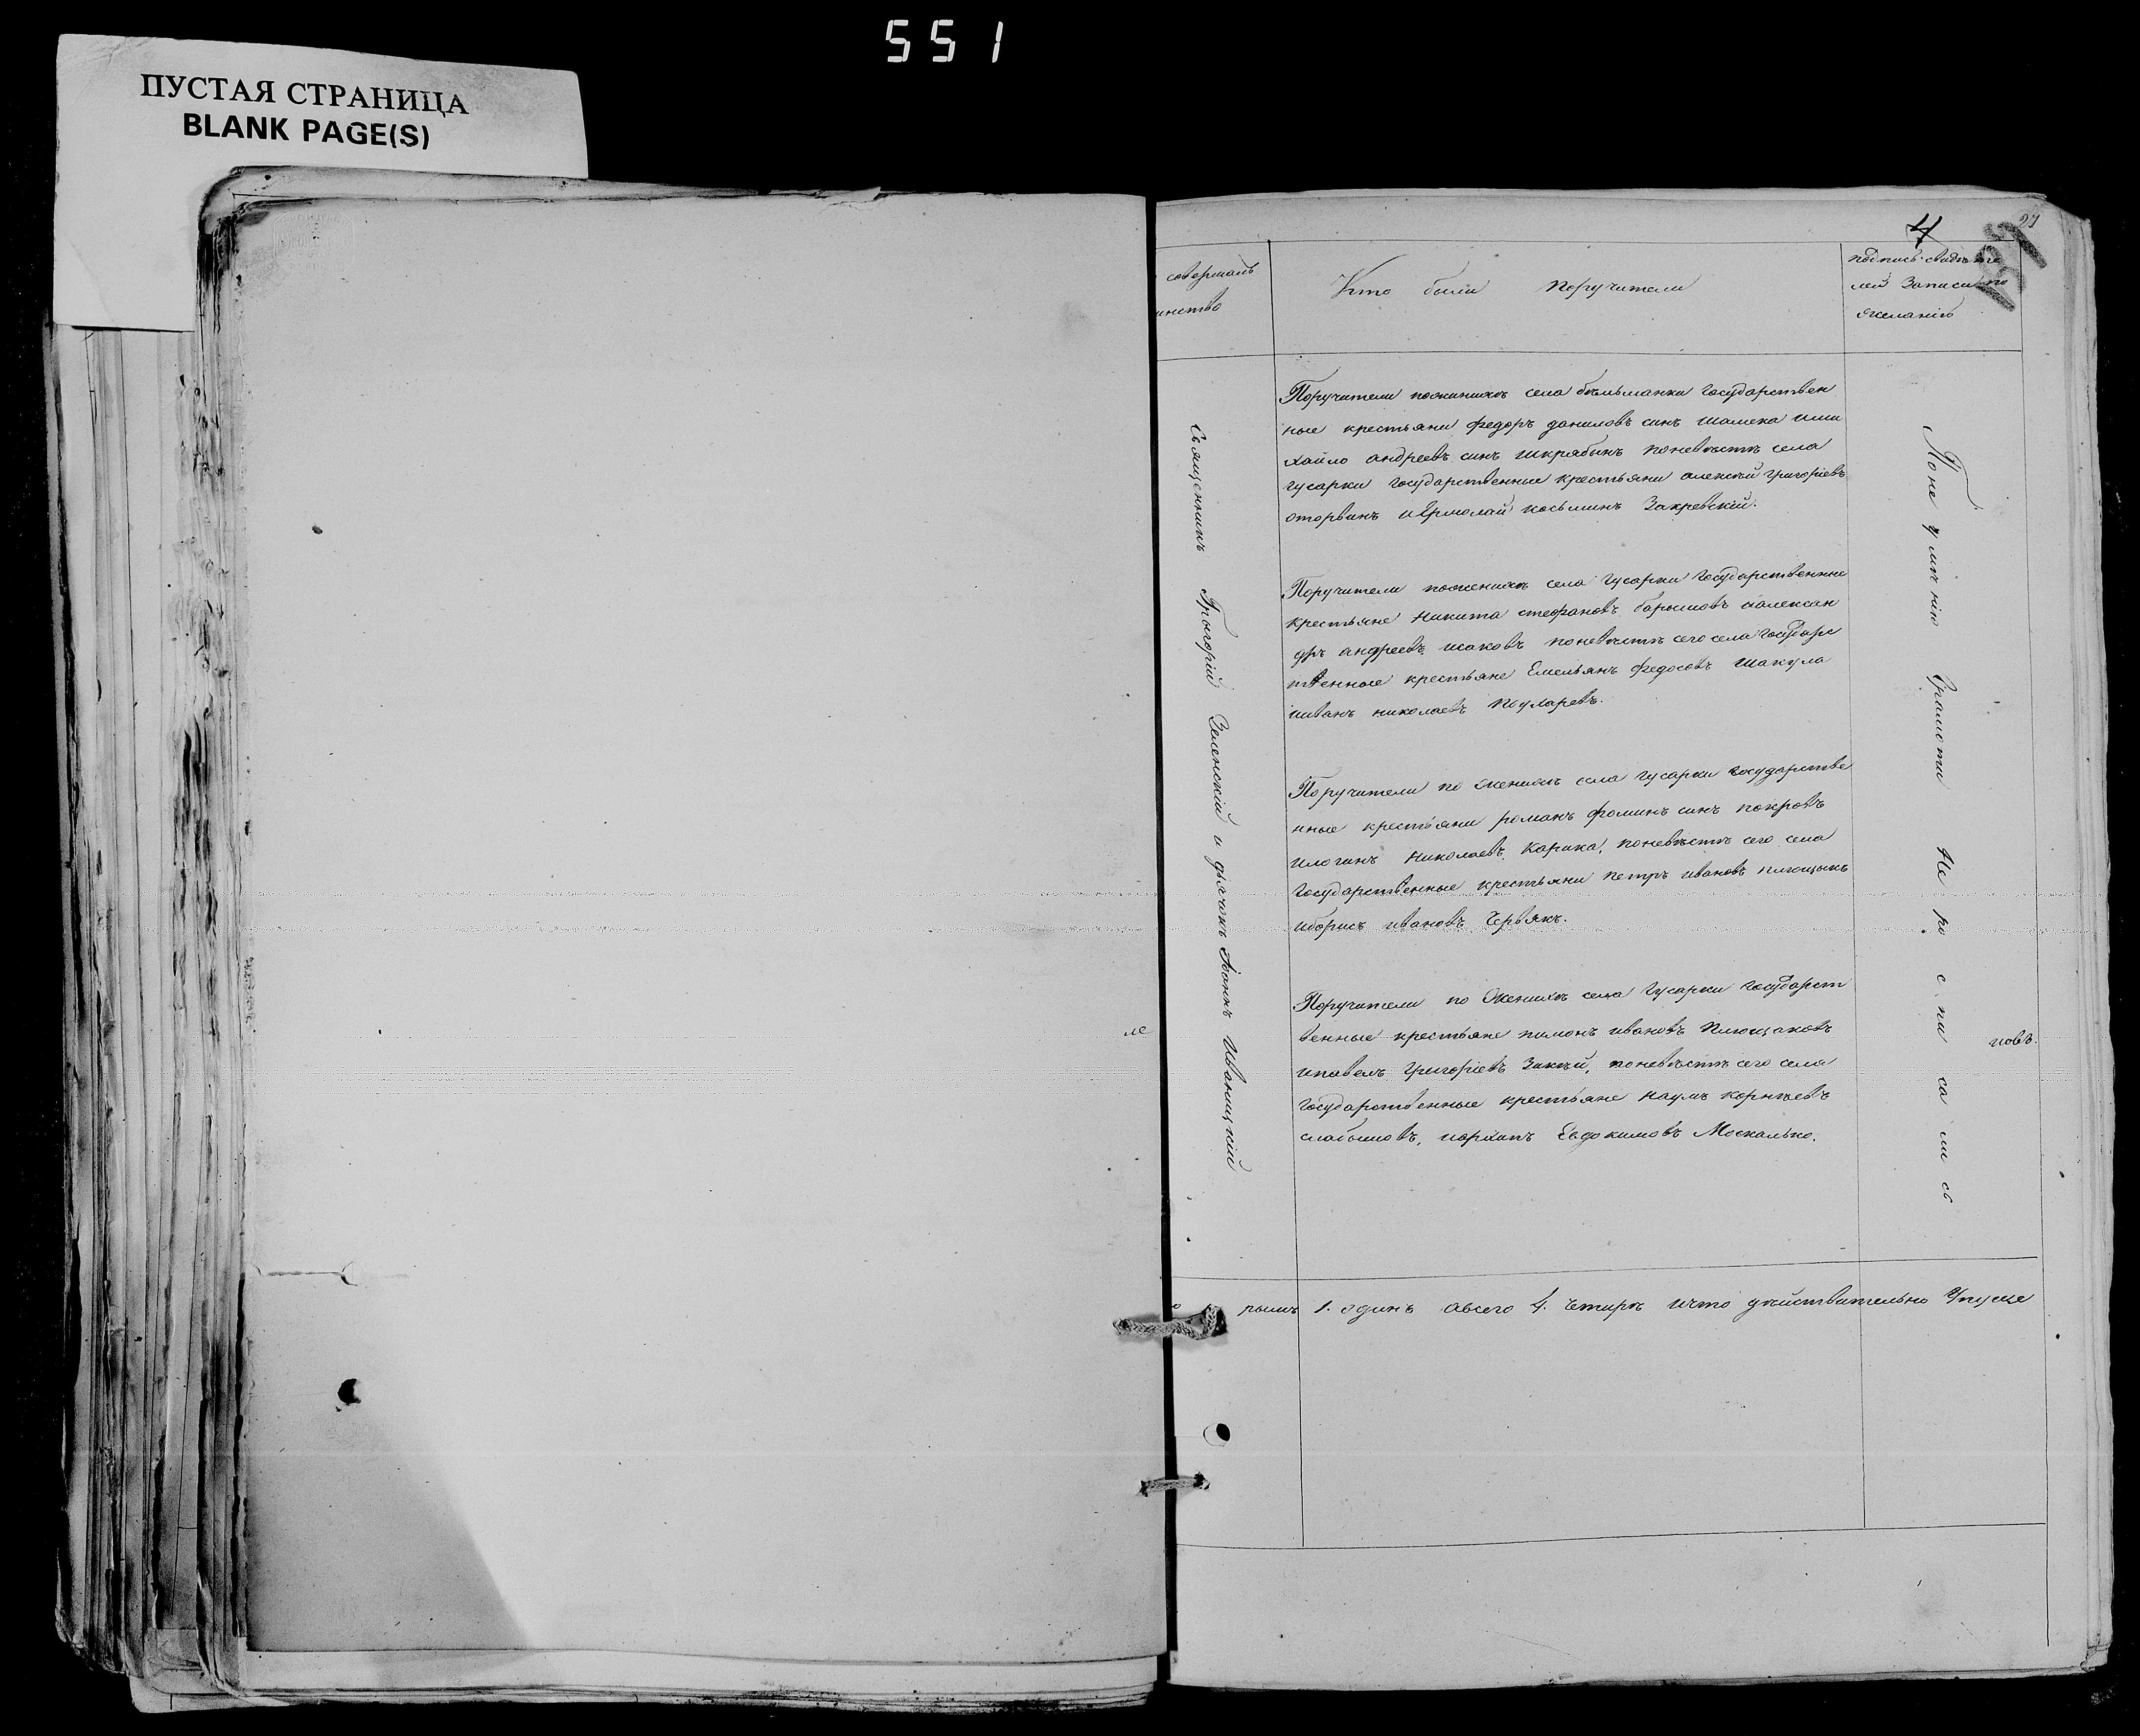 551
ПУСТАЯ СТРАНИЦА
BLANK PAGE(S)
4
27
совершалъ
инство
Кто были поручители
подпись свидѣте
лей записи по
желанію
Поручители поженихѣ села бѣльманки государствен
ные крестьяни федоръ даниловъ синъ шамека ими
хайло андреевъ синъ шкрябинъ поневѣстѣ села
гусарки государственные крестьяни алексѣй григоріевъ
оторвинъ иермолай косьминъ Закревскій.
Поручители поженихѣ села гусарки государственные
крестьяне никита стефановъ барышовъ иалексан
дръ андреевъ исаковъ поневѣстѣ сего села государс
твенные крестьяне Емельянъ федосовъ шакула
ииванъ николаевъ поударевъ.
Поручители по женихѣ села гусарки государстве
нные крестьяни романъ фоминъ синъ покровъ
илогинъ николаевъ карика, поневѣстѣ сего села
государственные крестьяни петръ ивановъ плющикъ
иборисъ ивановъ Червякъ.
Поручители по Женихѣ села гусарки государст
венные крестьяне пимонъ ивановъ плющаковъ
ипавелъ григоріевъ Заикѣй, поневѣстѣ сего села
государственные крестьяне наумъ корнѣевъ
слабышовъ, иархипъ Евдокимовъ Москалько.
Священникъ Григорій Зеленскій и дьячокъ Іоаннъ Иваницкій
Понеумѣнію Грамоти Не росписались
ле
новъ.
рымъ 1. одинъ авсего 4. четирѣ ичто дѣйствительно упуще